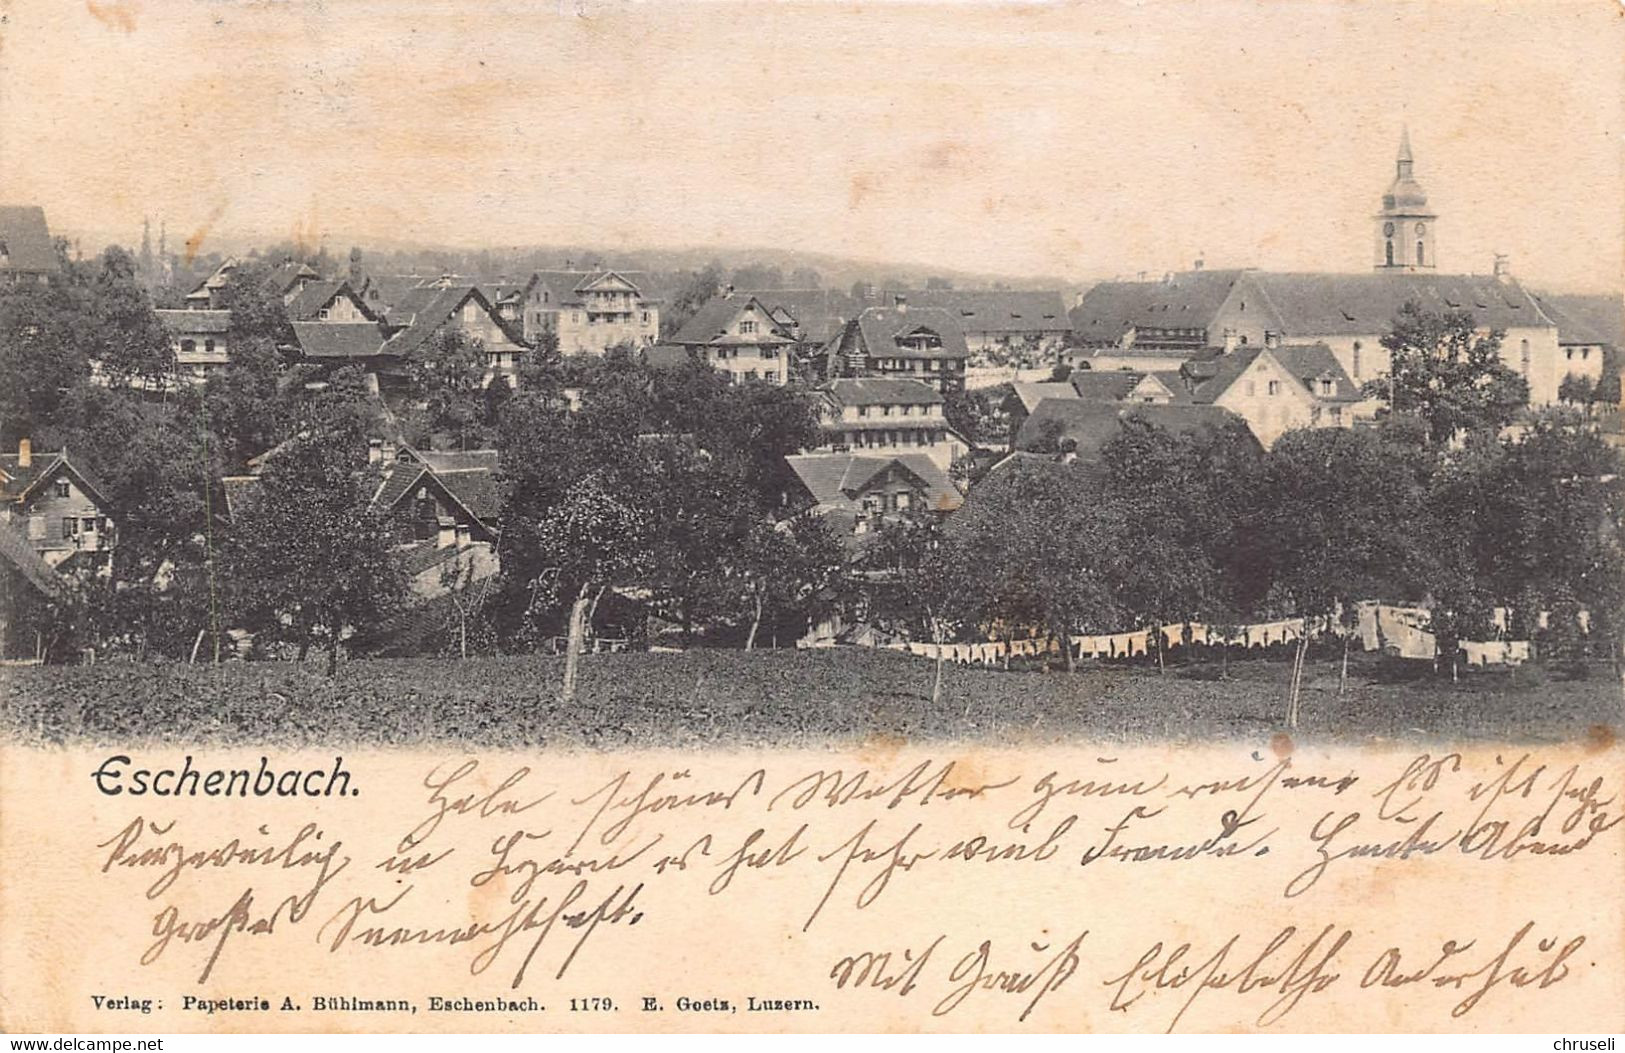 Eschenbach.
Habe schönes Wetter zum reisen Es ist sehr
kurzweilig in Luzern es hat sehr viel Fremde. Heute Abend
Großes Seenachtfest.
Mit Gruß Elisabetha Anderhub
Verlag: Papeterie A. Bühlmann, Eschenbach. 1179. E. Goetz, Luzern.
www.delcampe.net
chruseli